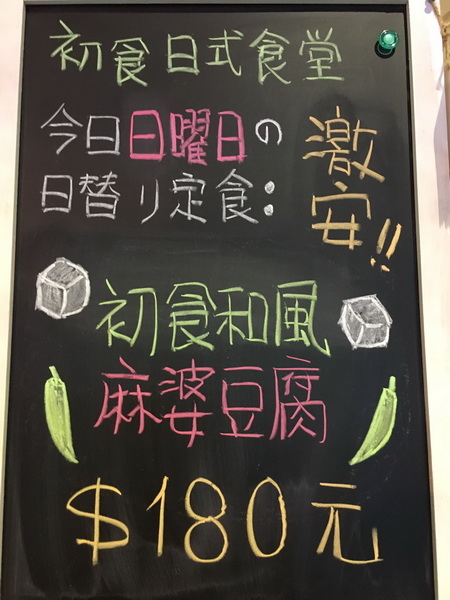 初食日式食堂
今日日曜日の
日替り定食:
激安!!
初食和風
麻婆豆腐
$180元